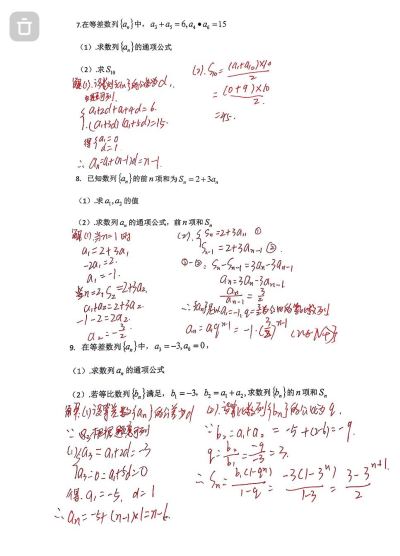 7.在等差数列{aₙ}中，a₂+a₅=6,a₄•a₆=15
（1）.求数列{aₙ}的通项公式
（2）.求S₁₀
{a₁+2d+a₁+4d=6.
(a₁+3d)(a₁+5d)=15.
得{a₁=0
d=1
∴aₙ=a₁+(n-1)d=n-1.
(2).S₁₀=(a₁+a₁₀)×10/2
=(0+9)×10/2.
=45.
8. 已知数列{aₙ}的前n项和为Sₙ=2+3aₙ
（1）.求a₁,a₂的值
（2）.求数列aₙ的通项公式，前n项和Sₙ
解(1).当n=1时
a₁=2+3a₁
-2a₁=2.
a₁=-1.
当n=2,S₂=2+3a₂
a₁+a₂=2+3a₂
-1-2=2a₂
a₂=-3/2
(2).{Sₙ=2+3aₙ ①
Sₙ₋₁=2+3aₙ₋₁ ②.
①-②:Sₙ-Sₙ₋₁=3aₙ-3aₙ₋₁
aₙ=3aₙ-3aₙ₋₁
aₙ/aₙ₋₁=3/2
aₙ=a₁qⁿ⁻¹=-1·(3/2)ⁿ⁻¹ (n∈N+)
9. 在等差数列{aₙ}中，a₃=-3,a₆=0，
（1）.求数列aₙ的通项公式
（2）.若等比数列{bₙ}满足，b₁=-3，b₂=a₁+a₂,求数列{bₙ}的n项和Sₙ
解.(1)设等差数列{aₙ}的公差为d
{a₃=a₁+2d=-3
a₆=0=a₁+5d=0
得.a₁=-5, d=1
∴aₙ=-5+(n-1)×1=n-6.
(2).设等比数列{bₙ}的公比为q.
∵b₂=a₁+a₂=-5+(-4)=-9.
q=b₂/b₁=-9/-3=3.
∴Sₙ=b₁(1-qⁿ)/1-q=-3(1-3ⁿ)/1-3=3-3ⁿ⁺¹/2